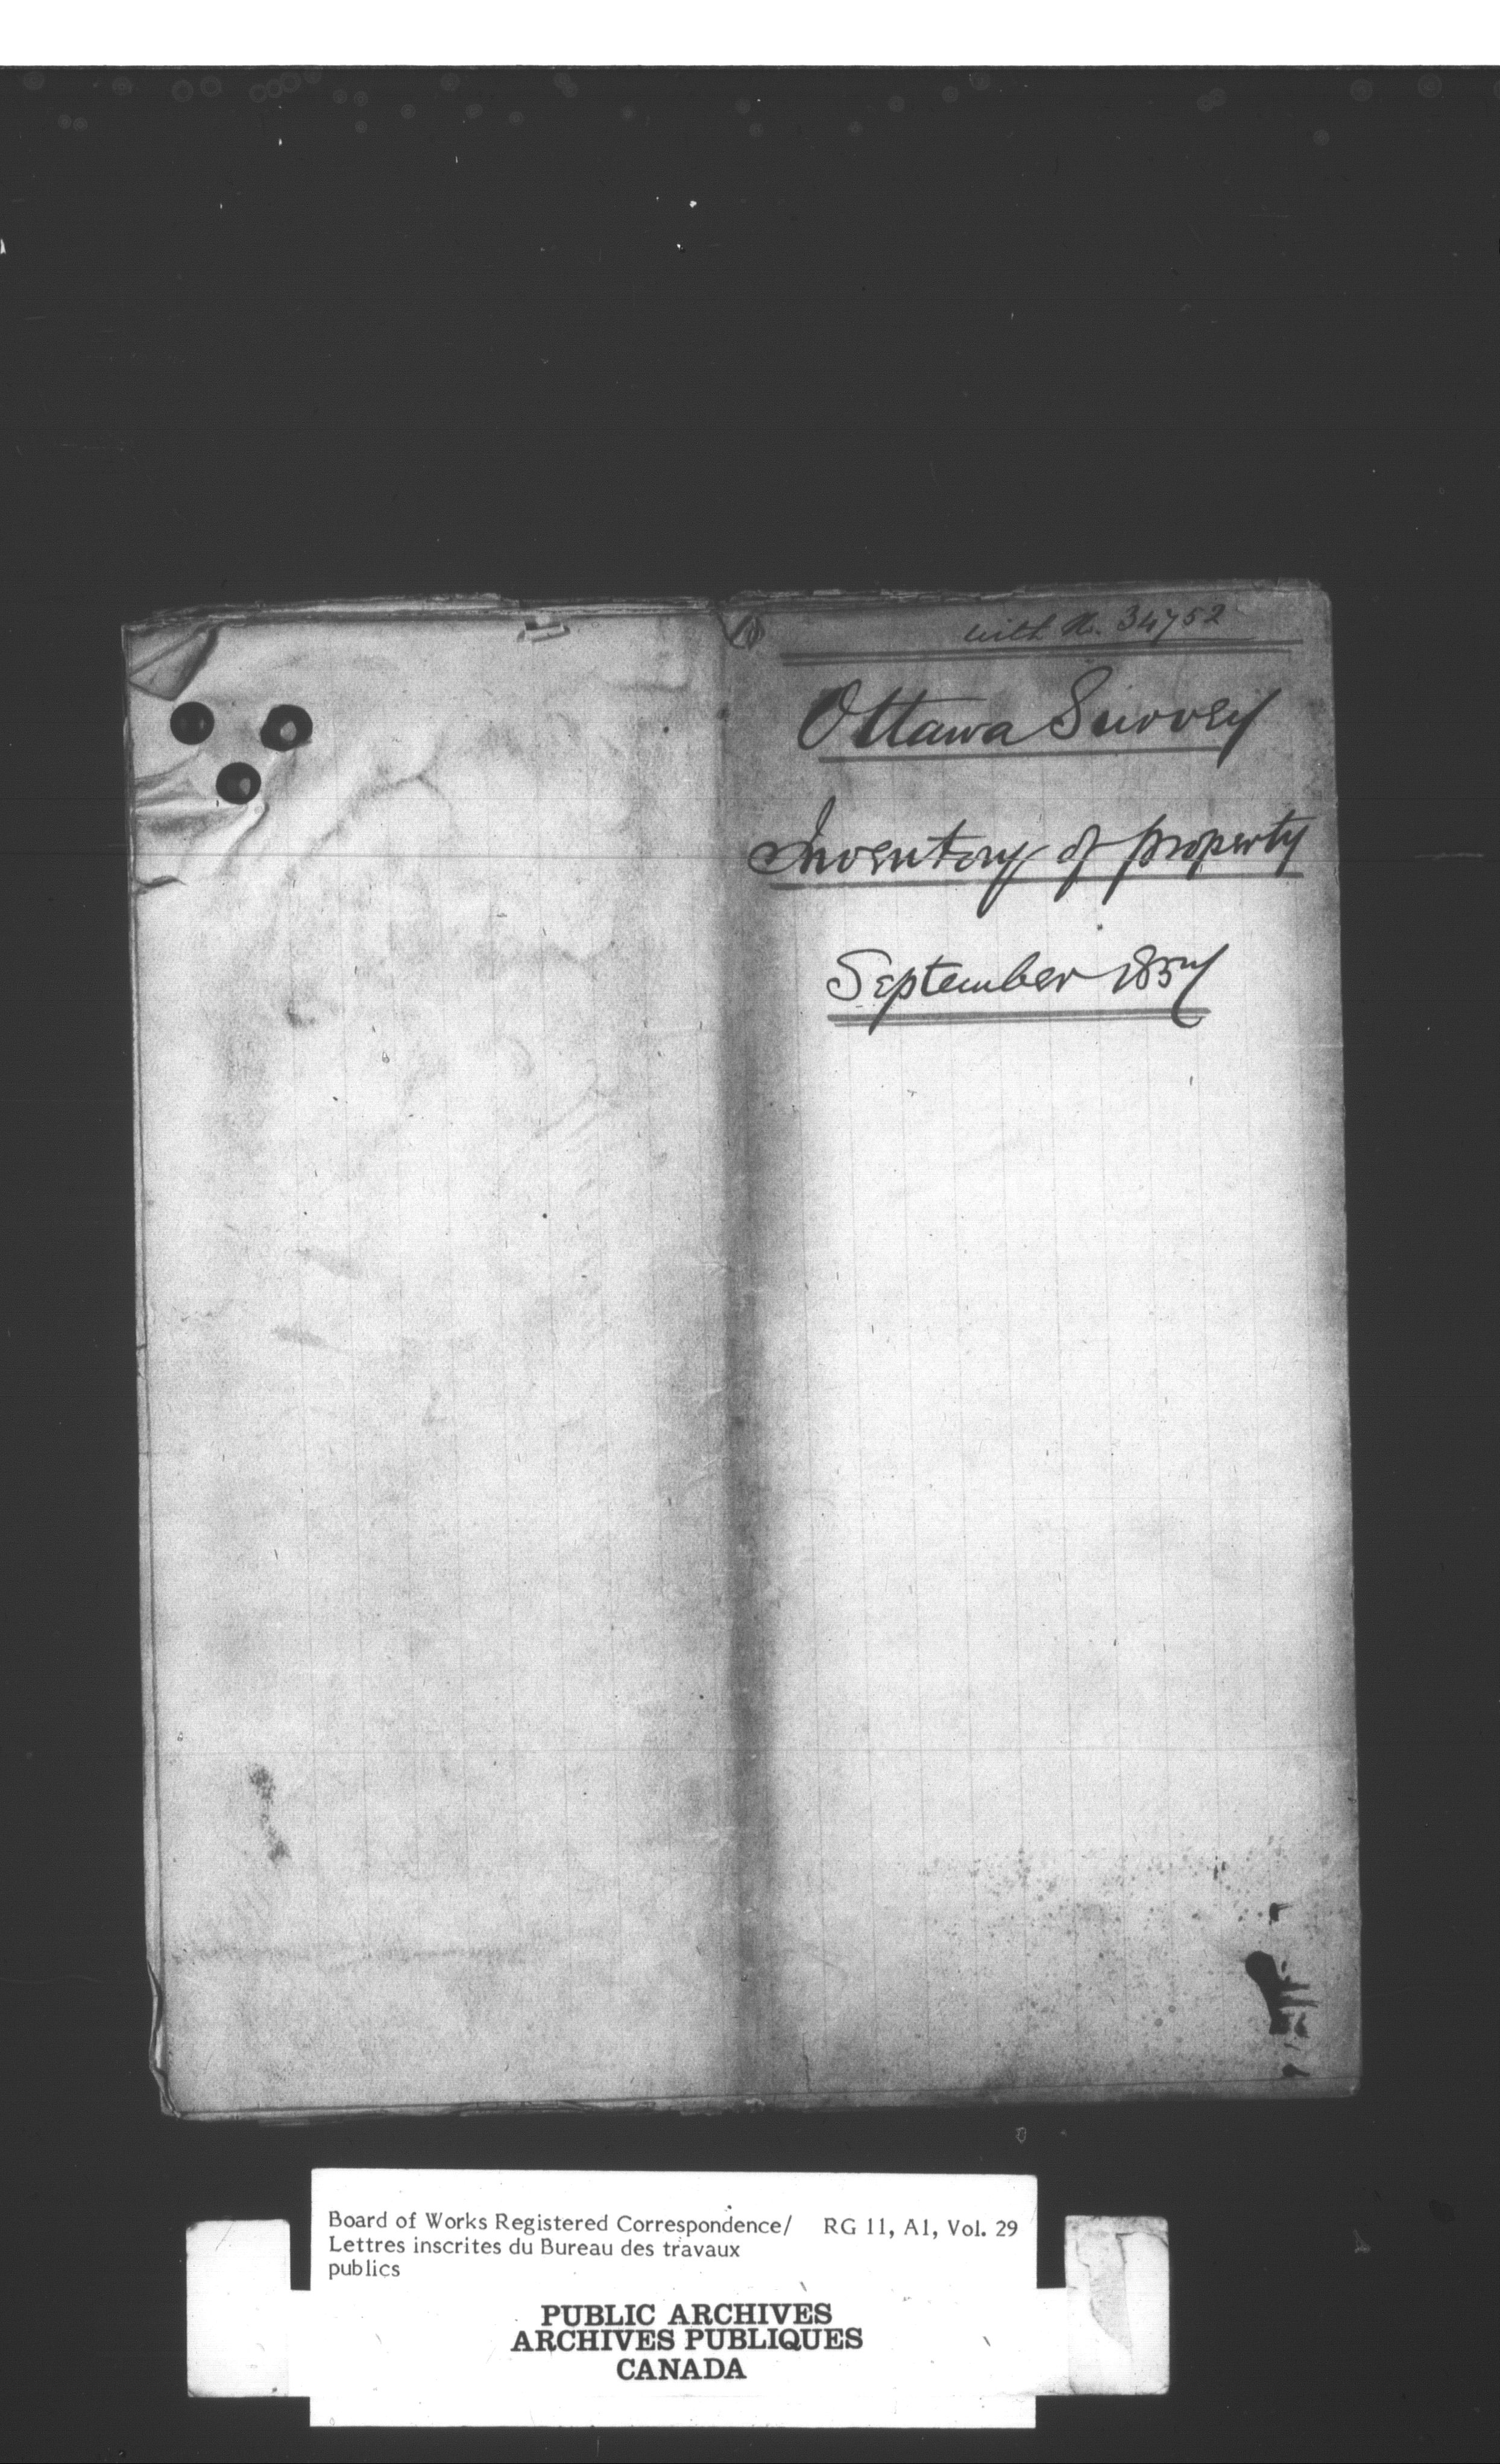 with No. 34752
Ottawa Survey
Inventory of property
September 1857
Board of Works Registered Correspondence/ RG 11, A1, Vol. 29
Lettres inscrites du Bureau des travaux
publics
PUBLIC ARCHIVES
ARCHIVES PUBLIQUES
CANADA